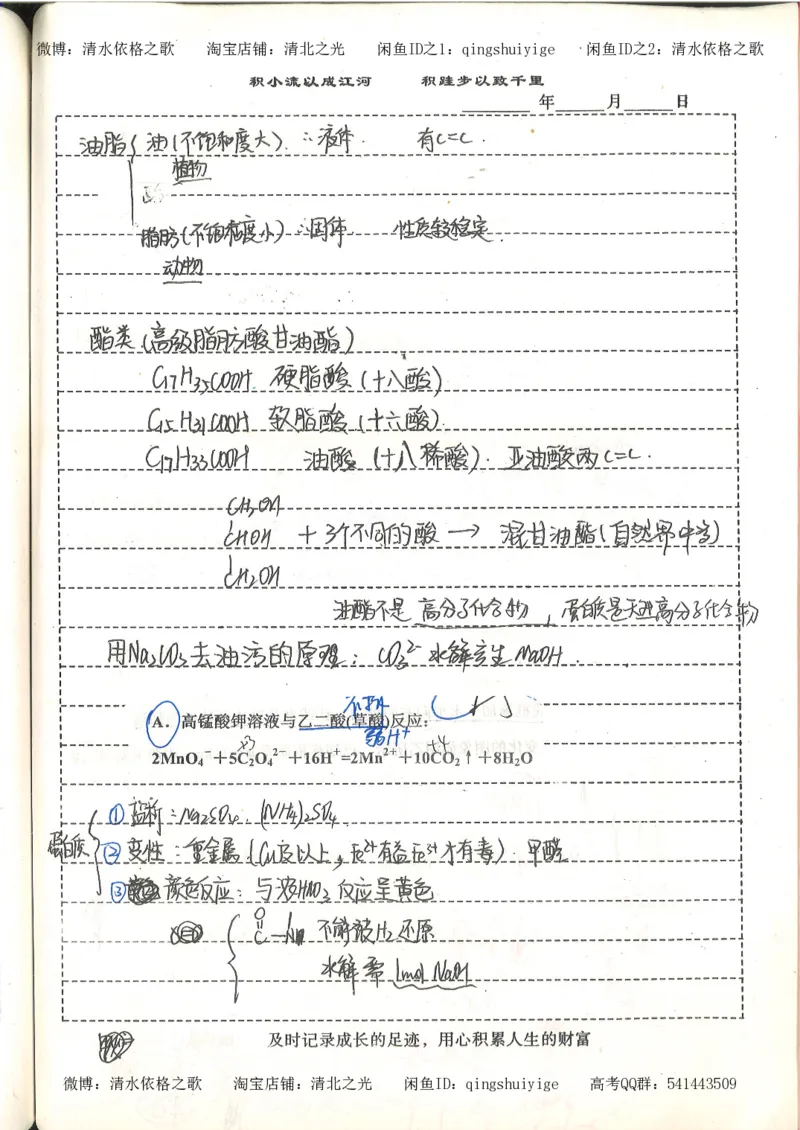 微博：清水依格之歌 淘宝店铺：清北之光 闲鱼ID之1：qingshuiyige 闲鱼ID之2：清水依格之歌
积小流以成江河 积跬步以致千里
年 月 日
油脂 油(不饱和度大) ∴液体. 有C=C.
植物
脂肪(不饱和度小) ∴固体 性质较稳定.
动物
酯类(高级脂肪酸甘油酯)
C17H35COOH 硬脂酸 (十八酸)
C15H31COOH 软脂酸 (十六酸)
C17H33COOH 油酸 (十八稀酸). 亚油酸两C=C.
CH2OH
CHOH + 3个不同的酸 → 混甘油酯(自然界中)
CH2OH
油酯不是高分子化合物, 蛋白质是天然高分子化合物
用Na2CO3去油污的原理: CO3²⁻水解产生NaOH.
不拆 ( × )
A．高锰酸钾溶液与乙二酸(草酸)反应：
弱H⁺
+3 +4
2MnO₄⁻＋5C₂O₄²⁻＋16H⁺=2Mn²⁺＋10CO₂↑＋8H₂O
① 盐析: Na2SO4. (NH4)2SO4.
蛋白质 ② 变性: 重金属(Cu及以上, Fe²⁺有益Fe³⁺才有毒). 甲醛
③ 颜色反应: 与浓HNO3反应呈黄色
O
C—N 不能被H2还原
水解需 1mol NaOH
及时记录成长的足迹，用心积累人生的财富
微博：清水依格之歌 淘宝店铺：清北之光 闲鱼ID：qingshuiyige 高考QQ群：541443509